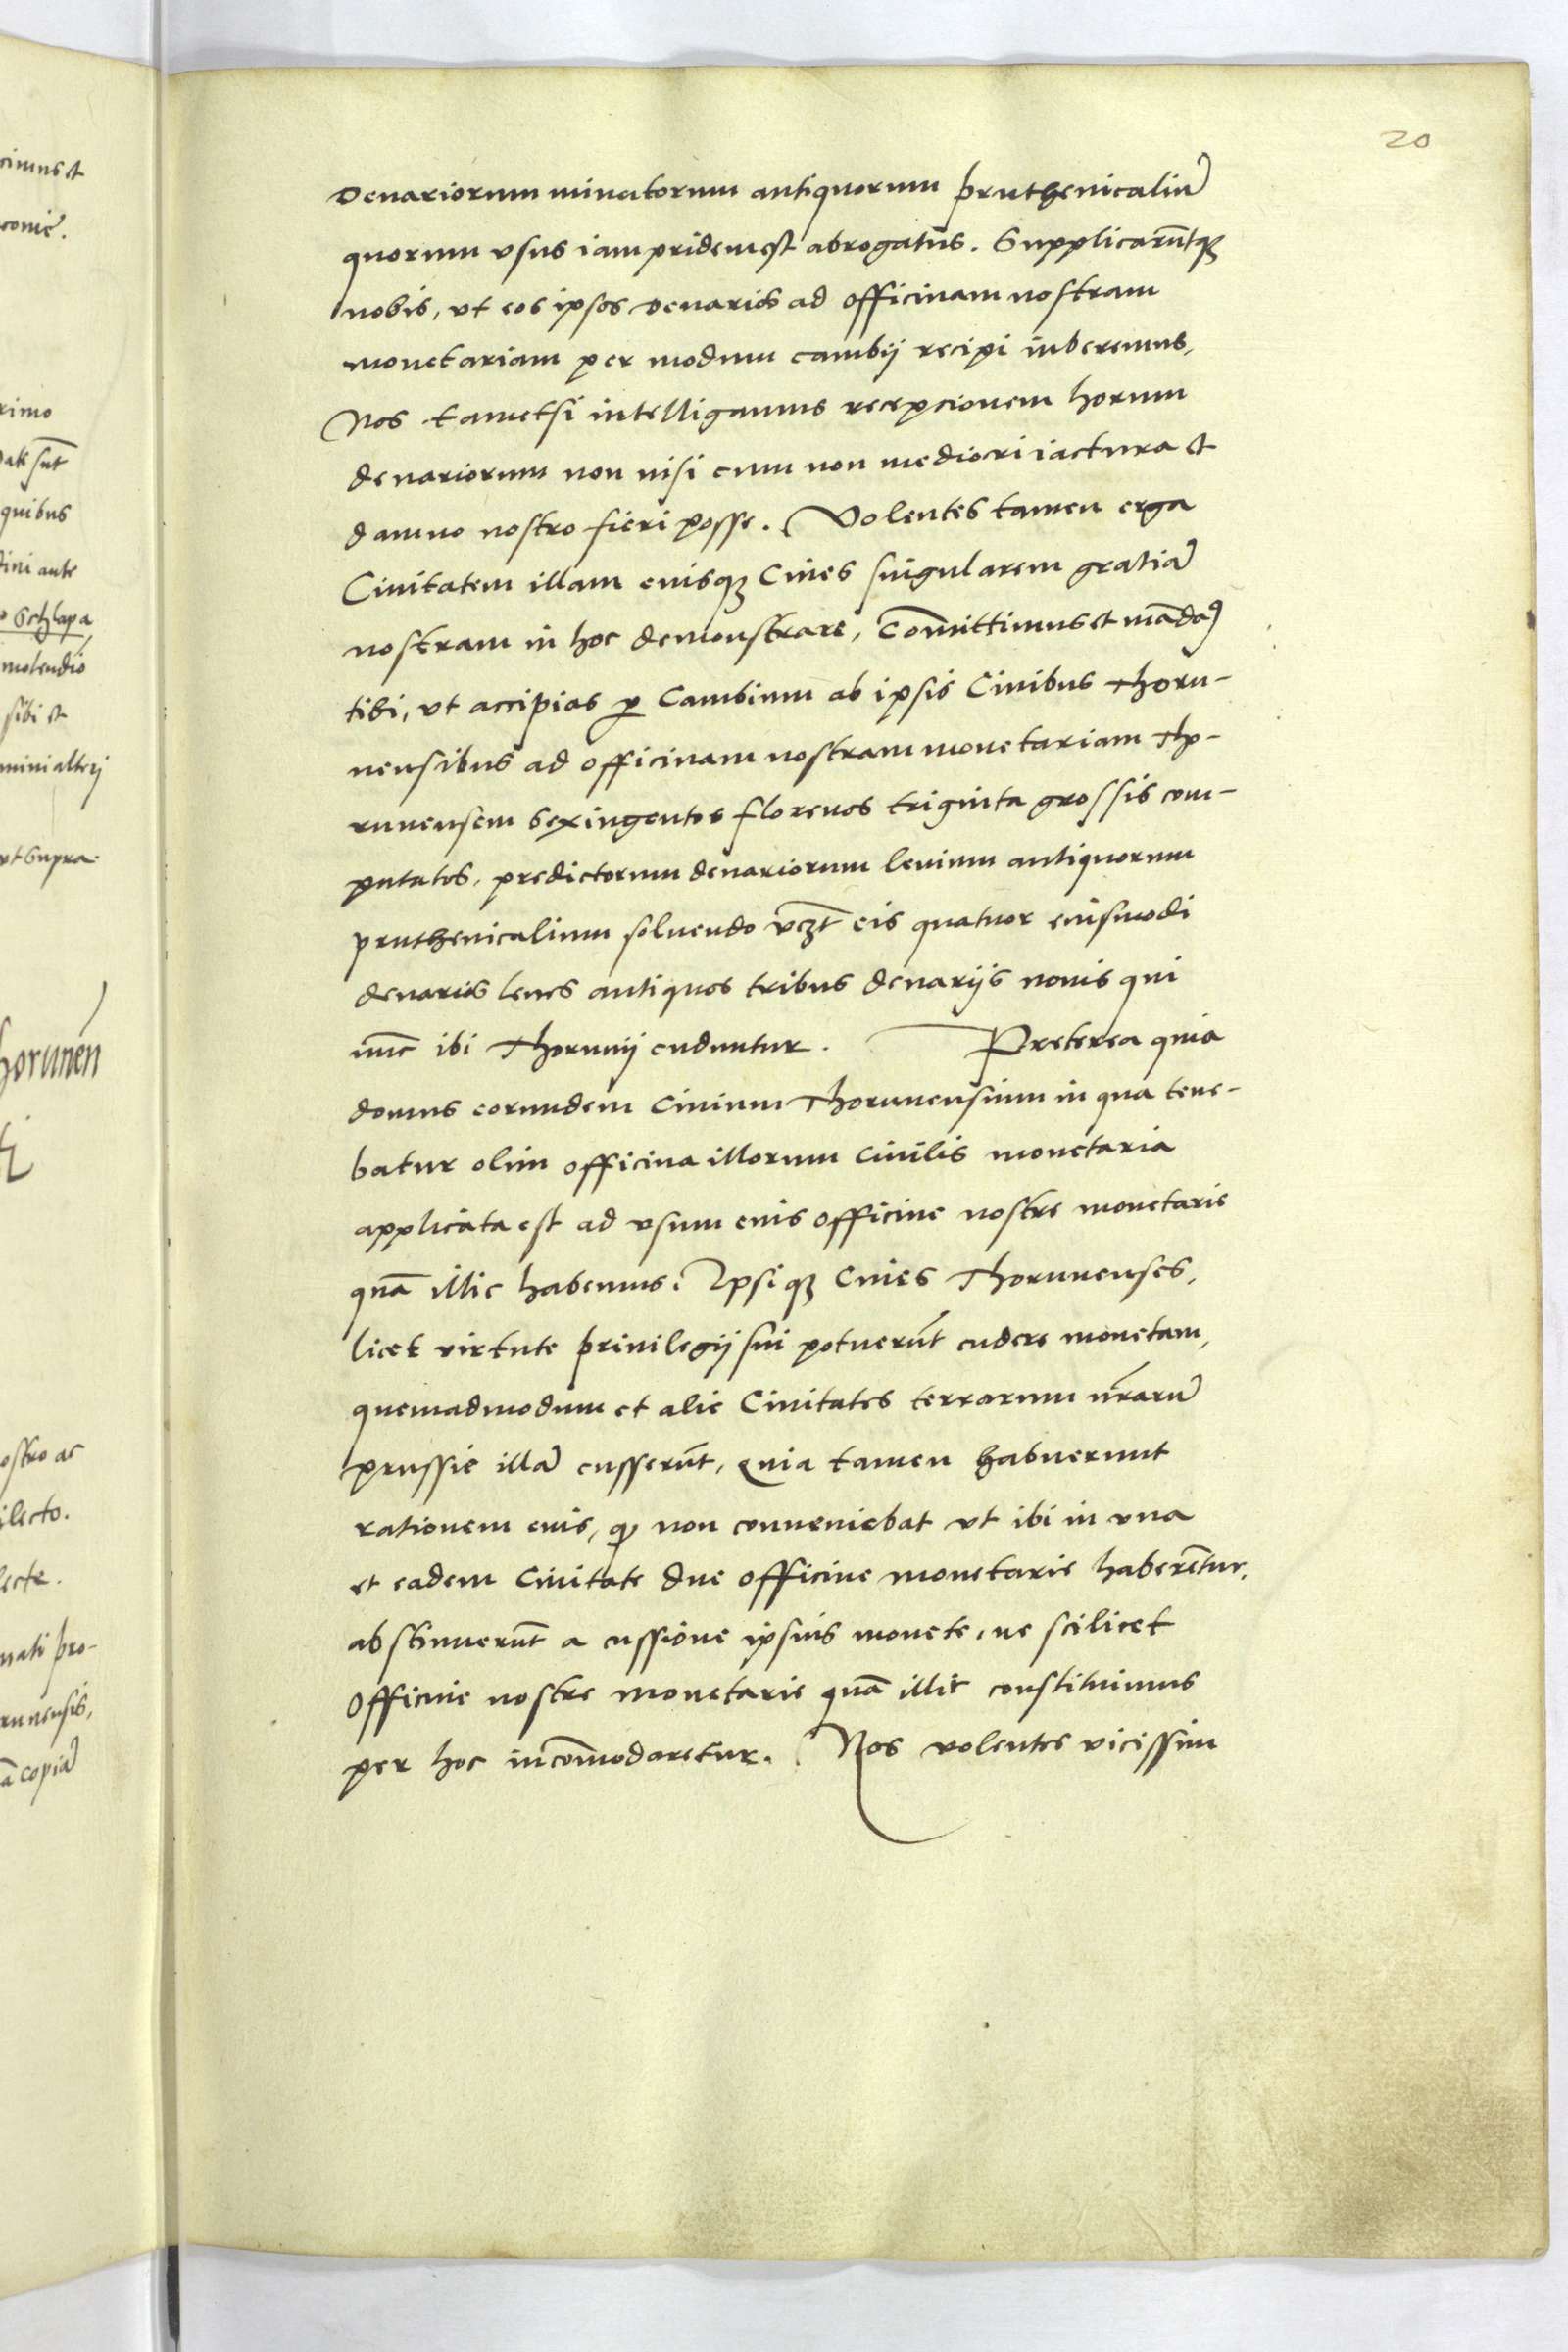 20
Denariorum minutorum antiquorum pruthenicaliũ
quorum vsus iampridem est abrogatus. Supplicarũtqꝫ
nobis, vt eos ipsos denarios ad officinam nostram
monetariam per modum cambij recipi iuberemus,
Nos tametsi intelligamus recepcionem horum
denariorum non nisi cum non mediocri iactura et
damno nostro fieri posse. Volentes tamen erga
Ciuitatem illam eiusqꝫ Ciues singularem gratiã
nostram in hoc demonstrare, Com̃ittimus et mãdaꝰ
tibi, vt accipias ꝑ Cambium ab ipsis Ciuibus Thoru-
nensibus ad officinam nostram monetariam Tho-
runensem Sexingentos florenos triginta grossis com-
putatos, predictorum denariorum leuium antiquorum
pruthenicalium soluendo vcꝫt eis quatuor eiusmodi
denarios leues antiquos tribus denarijs nouis qui
nũc ibi Thorunij cuduntur. Preterea quia
domus eorundem Ciuium Thorunensium in qua tene-
batur olim officina illorum Ciuilis monetaria
applicata est ad vsum eius officine nostre monetarie
quã illic habemus. Ipsiqꝫ Ciues Thorunenses,
licet virtute priuilegij sui potuerũt cudere monetam,
quemadmodum et alie Ciuitates terrarum nr̃arũ
prussie illã cusserũt, quia tamen habuerunt
rationem eius, qꝫ non conueniebat vt ibi in vna
et eadem Ciuitate due officine monetarie haberẽtur,
abstinuerũt a cussione ipsius monete, ne scilicet
officine nostre monetarie quã illic constituimus
per hoc incom̃odaretur. Nos volentes vicissim
cimus et
rimo
quibus
ante
Schlapa
molendio
sibi et
mini alteri
vt Supra
horunen
ostro ac
ilecto.
lecte.
nati pro-
runensis,
copiã